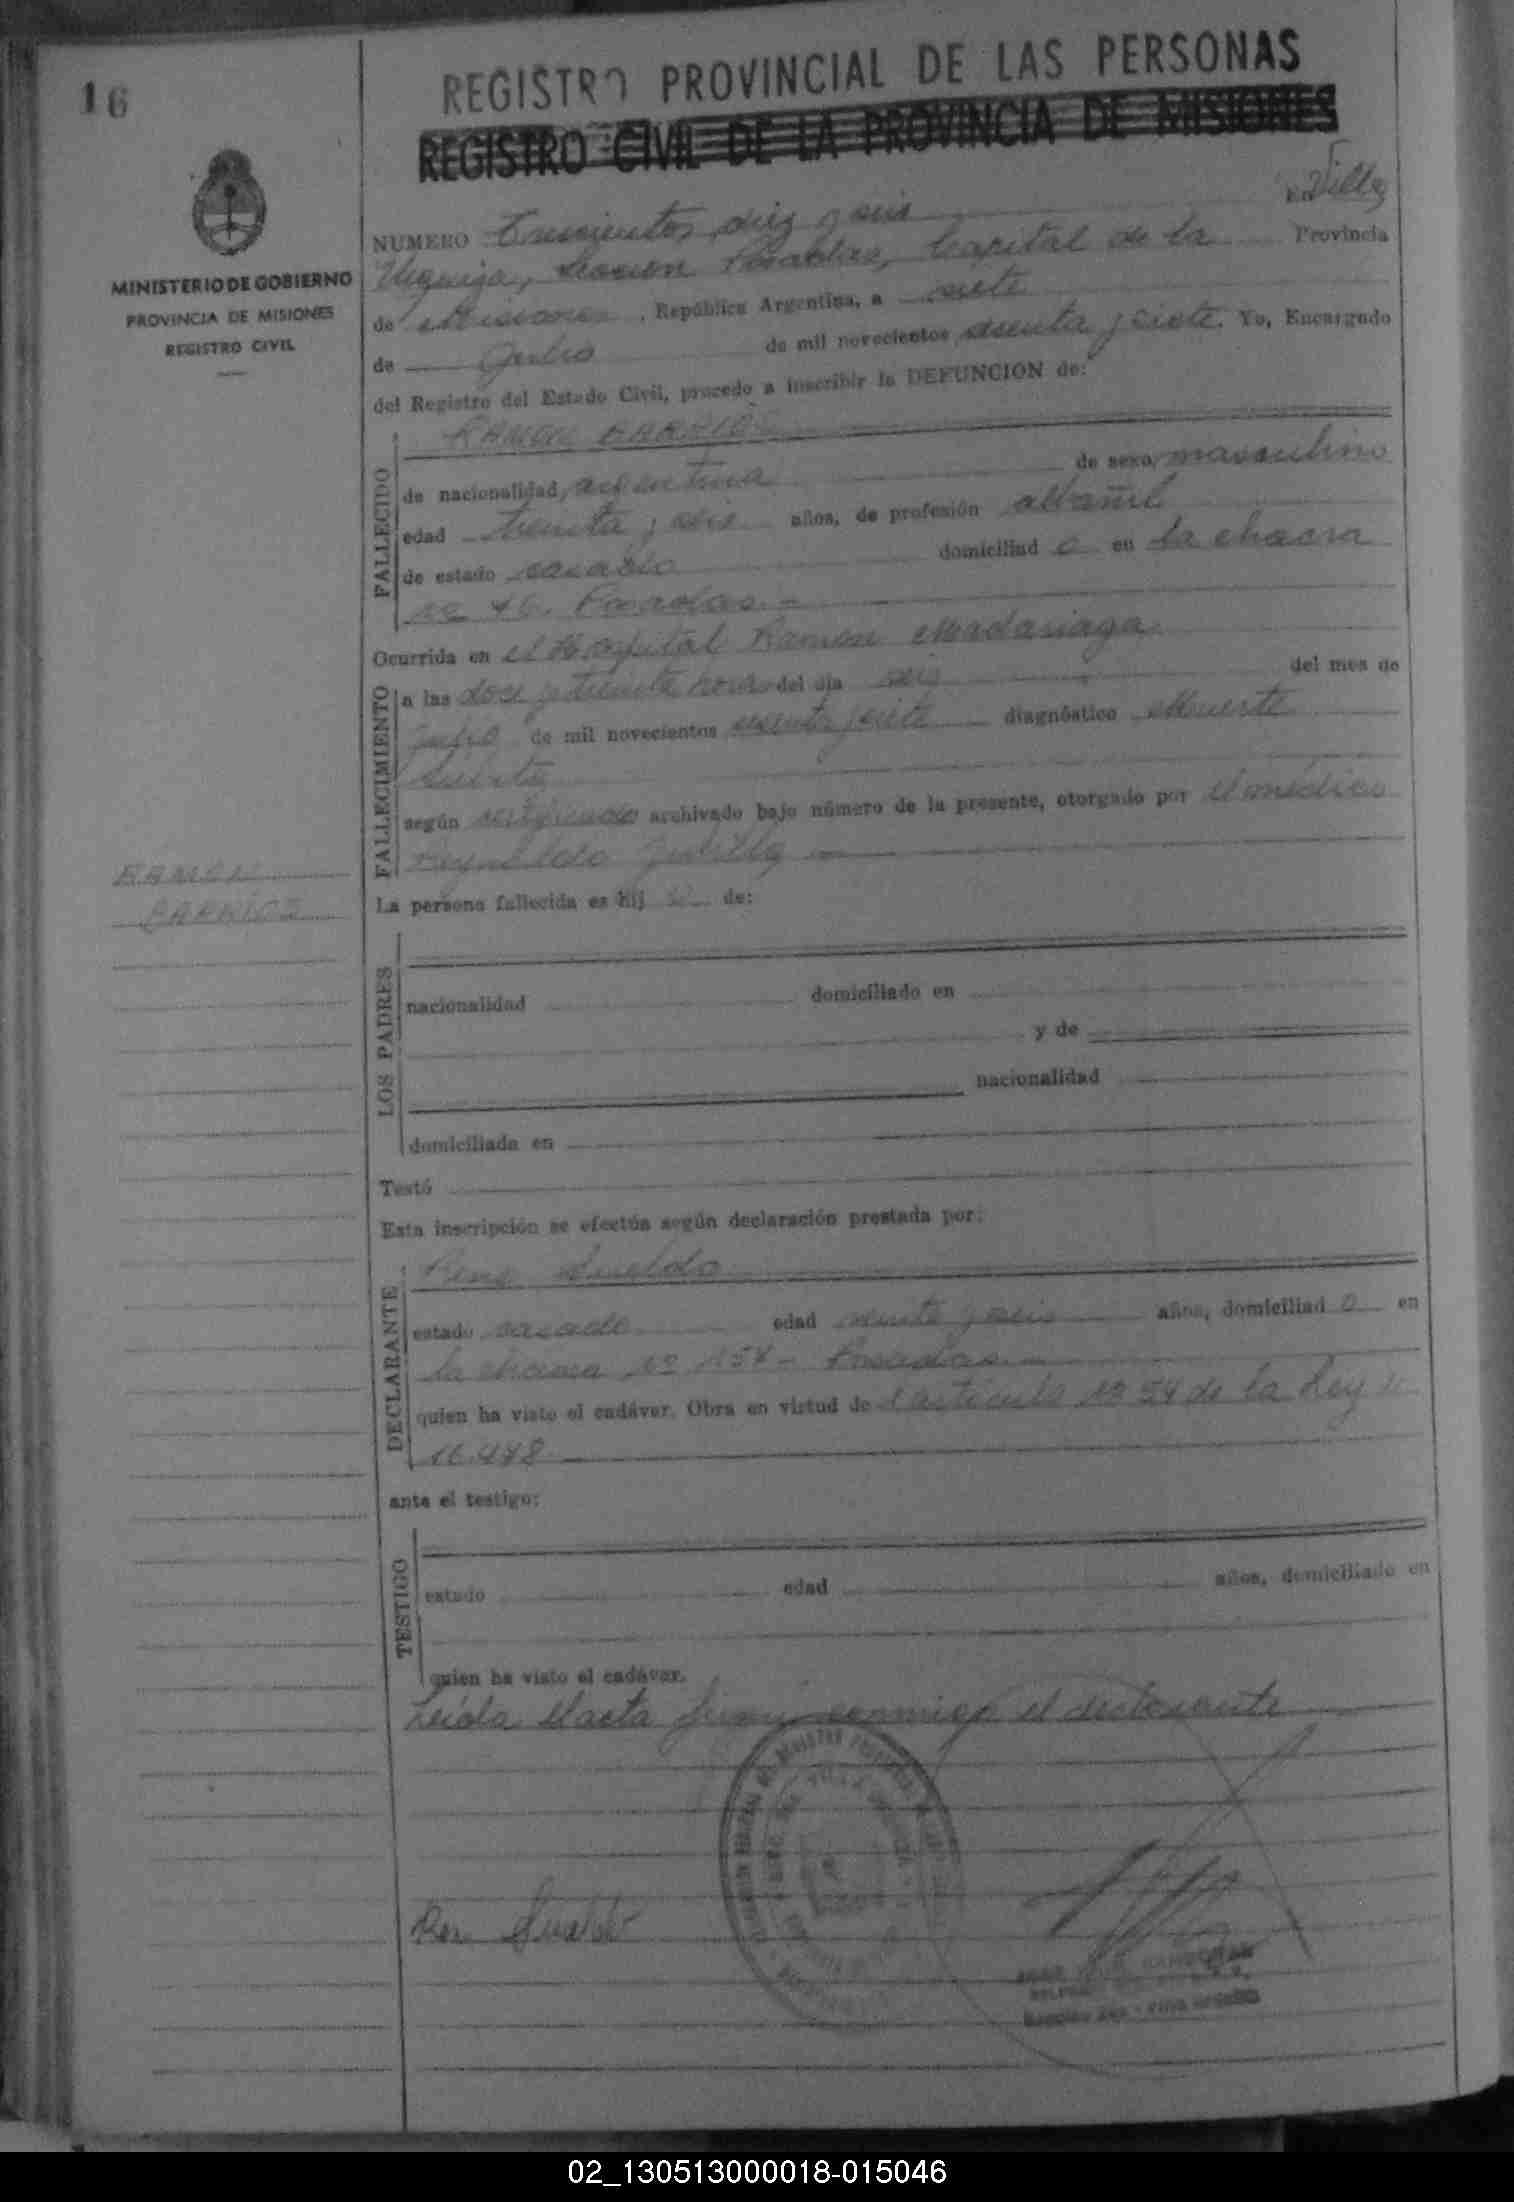 16
REGISTRO PROVINCIAL DE LAS PERSONAS
REGISTRO CIVIL DE LA PROVINCIA DE MISIONES
MINISTERIO DE GOBIERNO
PROVINCIA DE MISIONES
REGISTRO CIVIL
NUMERO Trescientos diez y seis Villa
Urquiza, Seccion Posadas, Capital de la Provincia
de Misiones, República Argentina, a siete
de Julio de mil novecientos sesenta y siete. Yo, Encargado
del Registro del Estado Civil, procedo a inscribir la DEFUNCION de:
RAMON BARRIOS
FALLECIDO
de nacionalidad argentina de sexo masculino
edad treinta y seis años, de profesión albañil
de estado casado domiciliad o en la chacra
no 46. Posadas.-
Ocurrida en el Hospital Ramon Madariaga
FALLECIMIENTO
a las doce y treinta horas del día seis del mes de
Julio de mil novecientos sesenta y siete diagnóstico Muerte
Subita
según certificado archivado bajo número de la presente, otorgado por el médico
Reynaldo
RAMON
BARRIOS
La persona fallecida es hij o de:
LOS PADRES
nacionalidad domiciliado en
y de
nacionalidad
domiciliada en
Testó
Esta inscripción se efectúa según declaración prestada por:
DECLARANTE
Rene Sueldo
estado casado edad veinte y seis años, domiciliad o en
la chacra no 154 - Posadas.-
quien ha visto el cadáver. Obra en virtud de l artículo no 54 de la Ley
16.478
ante el testigo:
TESTIGO
estado edad años, domiciliado en
quien ha visto el cadáver.
Leída el acta firma conmigo el declarante
Rene Sueldo
02_130513000018-015046